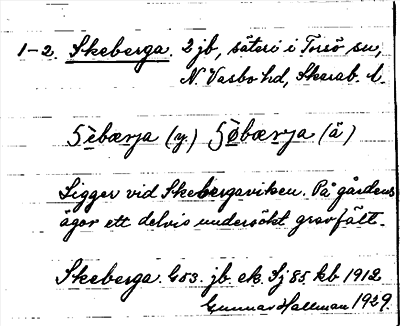 1-2. Skeberga. 2 jb, säteri i Torsö sn,
N. Vasbo hd, Skarab. l.
5èbærja (y.) 5òbærja (ä)
Ligger vid Skebergaviken. På gårdens
ägor ett delvis undersökt gravfält.
Skeberga. G53. jb. ek. Sj 85. kb 1912
Gunnar Hallman 1929.